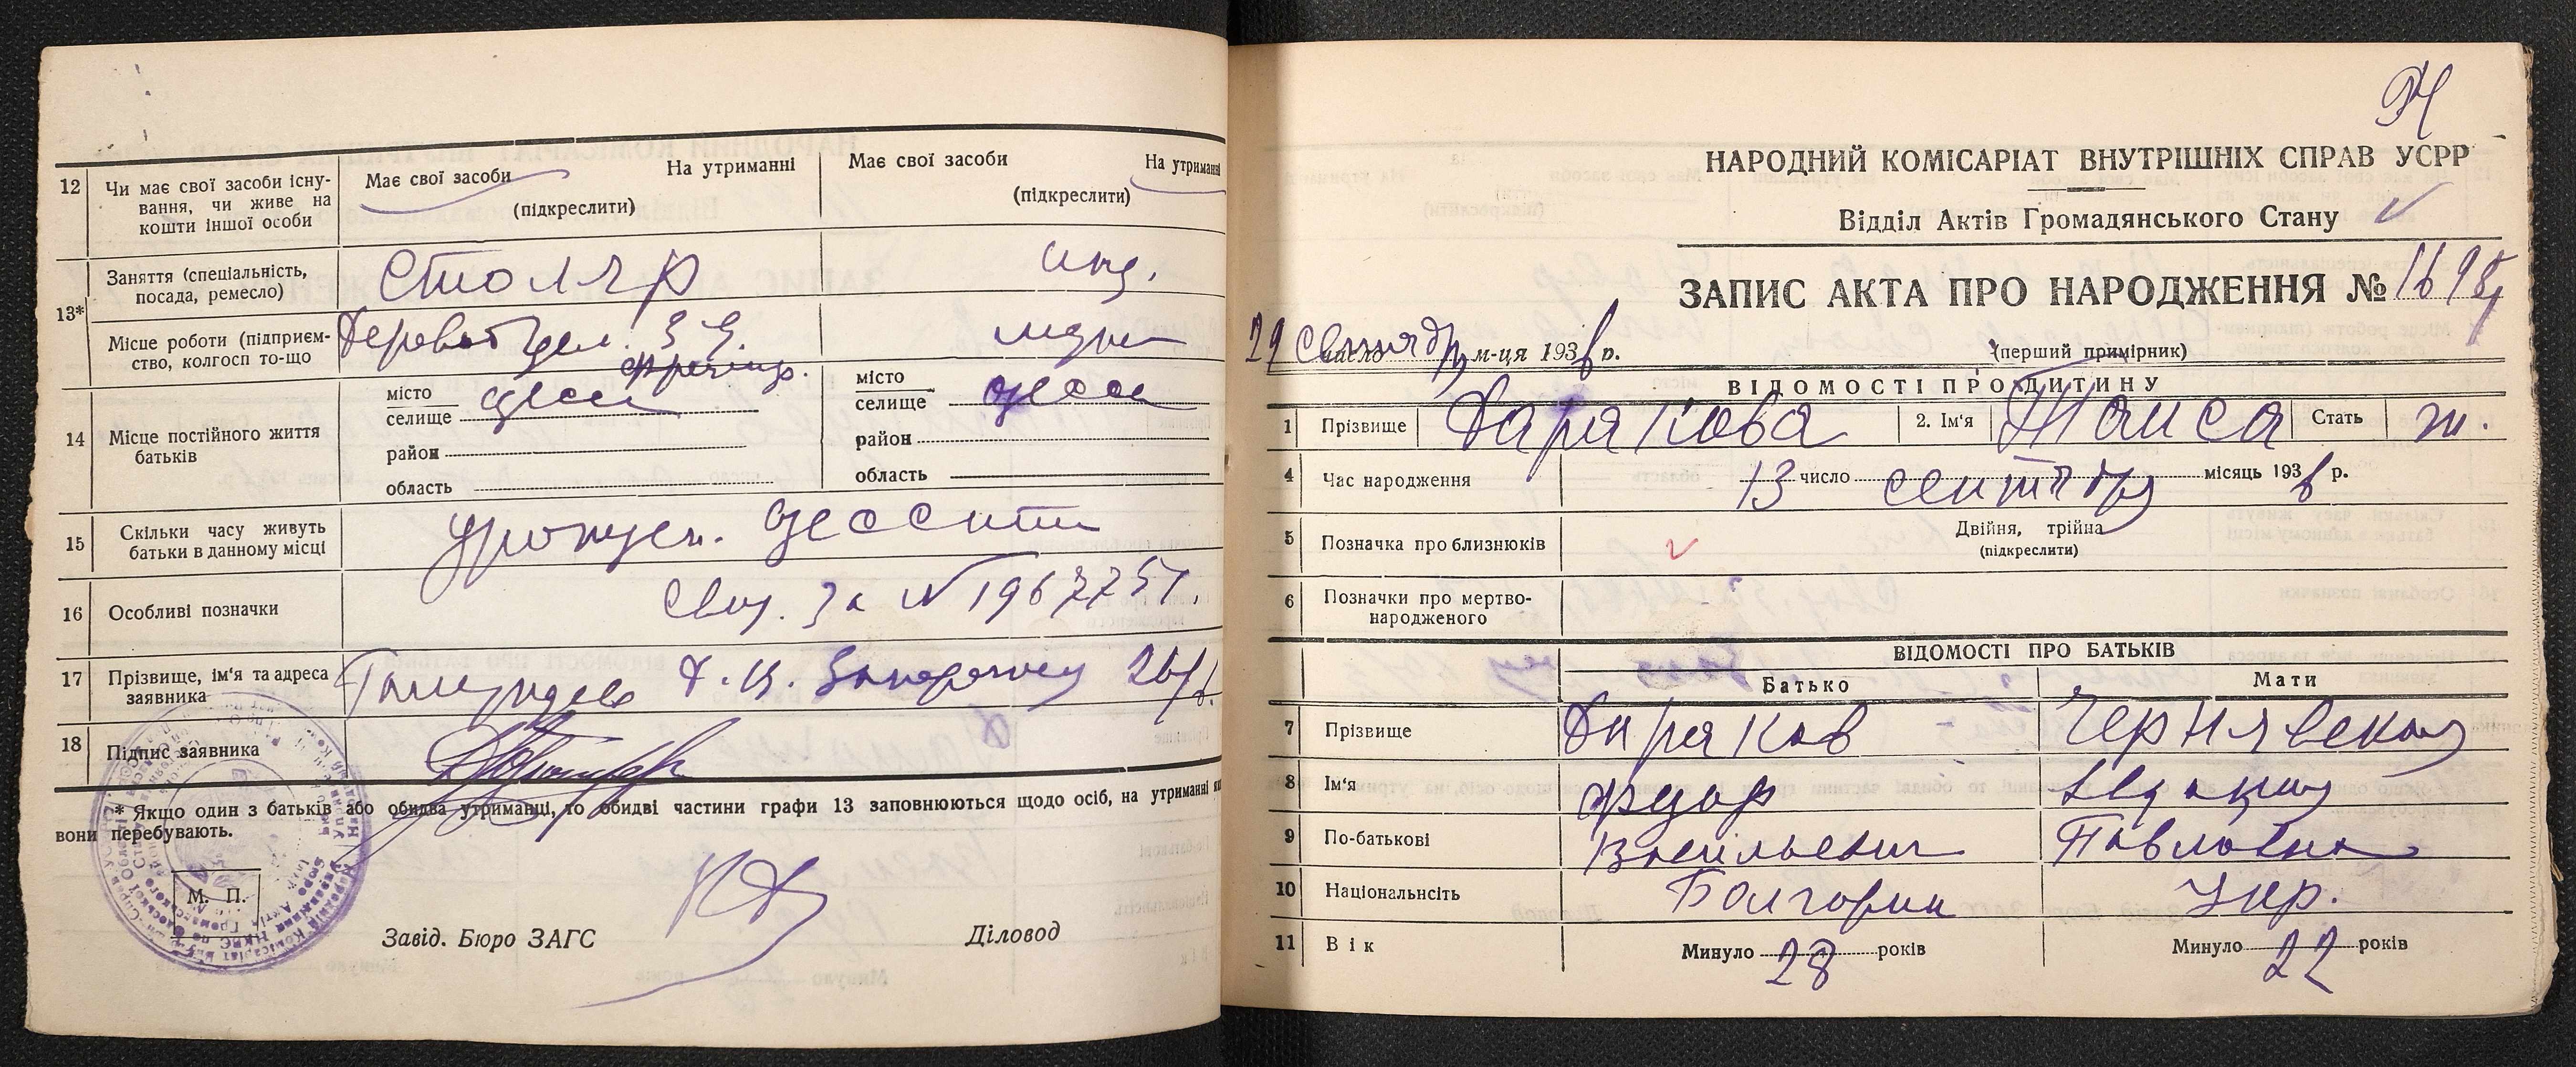 12 Чи має свої засоби існу-
вання, чи живе на
кошти іншої особи
Має свої засоби На утриманні
(підкреслити)
Має свої засоби На утриманні
(підкреслити)
13* Заняття (спеціальність,
посада, ремесло)
Столяр
ижд.
Місце роботи (підприєм-
ство, колгосп то-що
мужа
14 Місце постійного життя
батьків
місто
селище Одесса
район
область
місто
селище Одесса
район
область
15 Скільки часу живуть
батьки в данному місці
урожден. Одесситы
16 Особливі позначки
Свид. за № 1967751.
17 Прізвище, ім'я та адреса
заявника
18 Підпис заявника
* Якщо один з батьків або обидва утриманці, то обидві частини графи 13 заповнюються щодо осіб, на утриманні
вони перебувають.
М. П.
Завід. Бюро ЗАГС Діловод
НАРОДНИЙ КОМІСАРІАТ ВНУТРІШНІХ СПРАВ УСРР
Відділ Актів Громадянського Стану
ЗАПИС АКТА ПРО НАРОДЖЕННЯ №
29 число сентября м-ця 1936 р. (перший примірник)
ВІДОМОСТІ ПРО ДИТИНУ
1 Прізвище Дарякова 2. Ім'я Таиса Стать ж.
4 Час народження 13 число сентября місяць 1936 р.
5 Позначка про близнюків Двійня, трійна
(підкреслити)
6 Позначки про мертво-
народженого
ВІДОМОСТІ ПРО БАТЬКІВ
Батько Мати
7 Прізвище Даряков Чернявская
8 Ім'я Федор
9 По-батькові Васильевич Павловна
10 Національнсіть Болгарин Укр.
11 Вік Минуло 28 років Минуло 22 років